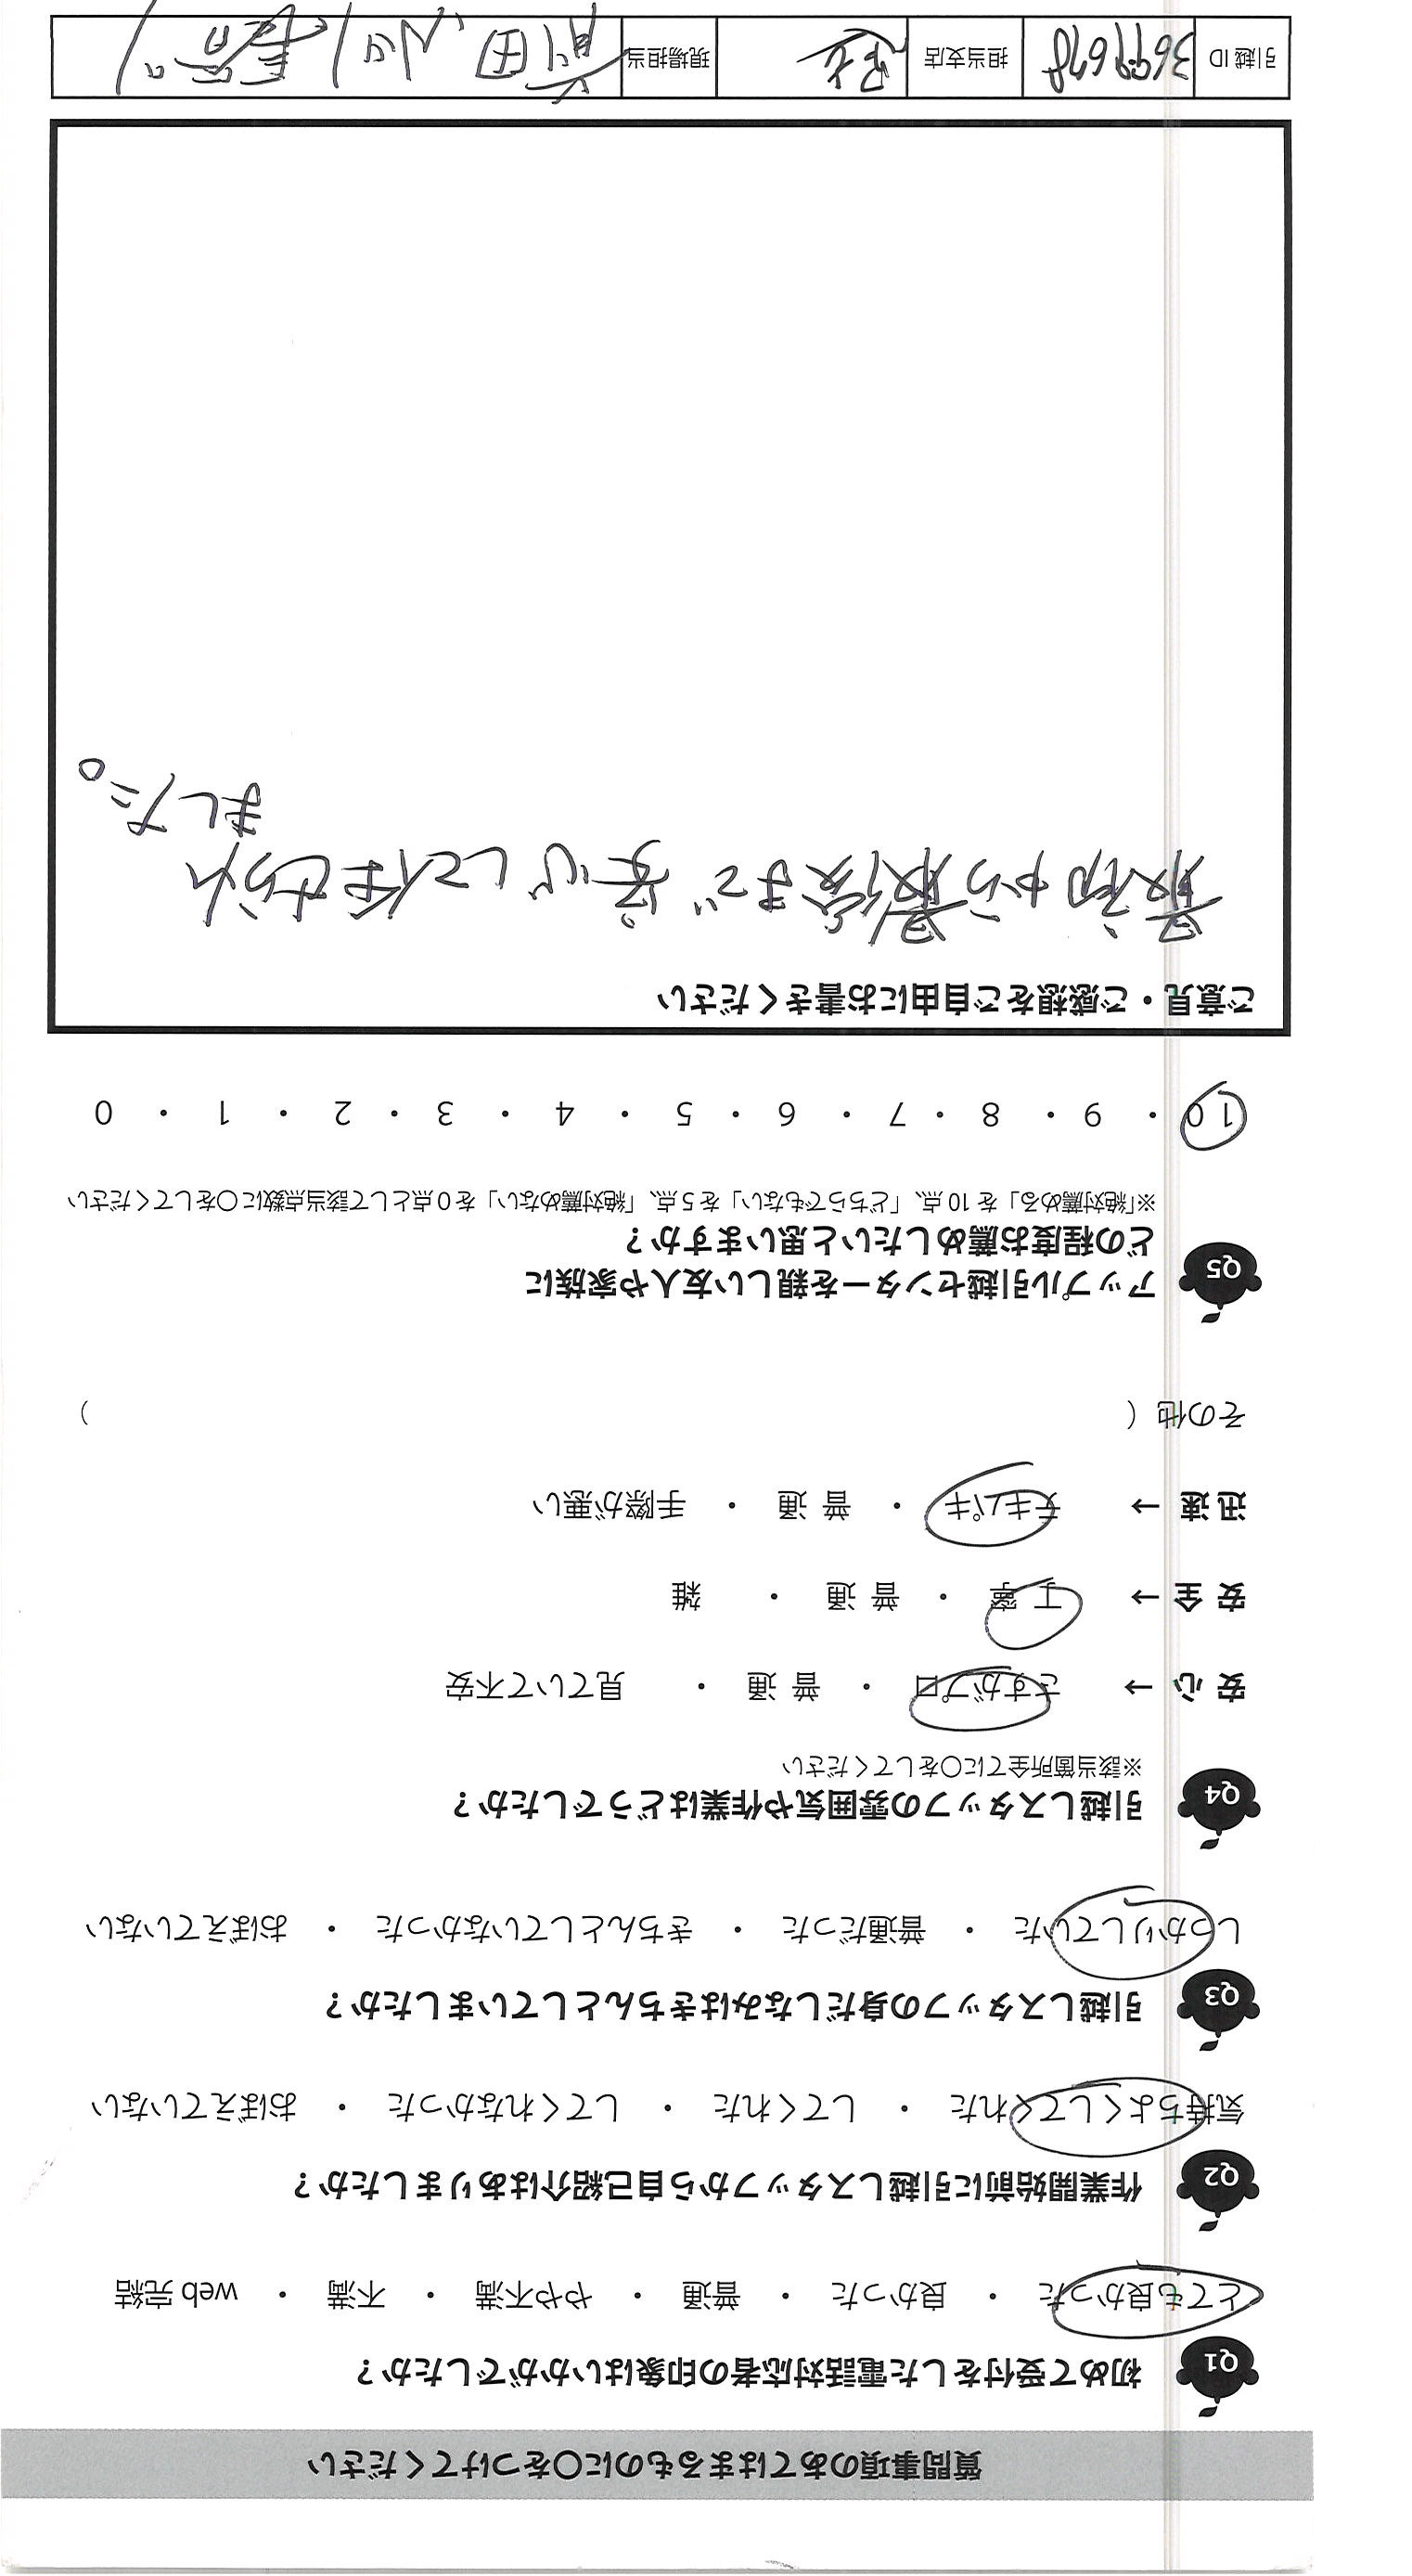 質問事項のあてはまるものに○をつけてください
Q1 初めて受付をした電話対応者の印象はいかがでしたか？
とても良かった ・ 良かった ・ 普通 ・ やや不満 ・ 不満 ・ web 完結
Q2 作業開始前に引越しスタッフから自己紹介はありましたか？
気持ちよくしてくれた ・ してくれた ・ してくれなかった ・ おぼえていない
Q3 引越しスタッフの身だしなみはきちんとしていましたか？
しっかりしていた ・ 普通だった ・ きちんとしていなかった ・ おぼえていない
Q4 引越しスタッフの雰囲気や作業はどうでしたか？
※該当箇所全てに○をしてください
安 心 → さすがプロ ・ 普 通 ・ 見ていて不安
安 全 → 丁 寧 ・ 普 通 ・ 雑
迅 速 → テキパキ ・ 普 通 ・ 手際が悪い
その他 ( )
Q5 アップル引越センターを親しい友人や家族に
どの程度お薦めしたいと思いますか？
※「絶対薦める」を 10 点、「どちらでもない」を 5 点、「絶対薦めない」を 0 点として該当点数に○をしてください
10 ・ 9 ・ 8 ・ 7 ・ 6 ・ 5 ・ 4 ・ 3 ・ 2 ・ 1 ・ 0
ご意見・ご感想をご自由にお書きください
最初から最後まで安心して任せられ
ました。
引越 ID 3699678 担当支店 現場担当